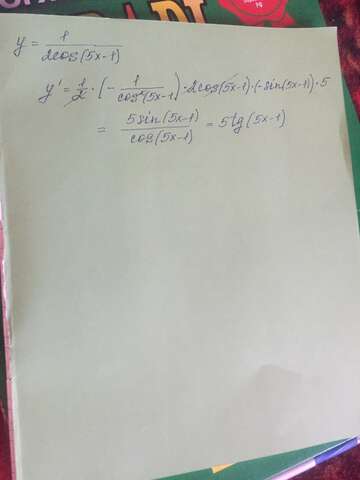 y = 1/(2cos(5x-1))
y' = 1/2 · (- 1/(cos²(5x-1))) · 2cos(5x-1) · (-sin(5x-1)) · 5
= (5sin(5x-1))/(cos(5x-1)) = 5tg(5x-1)